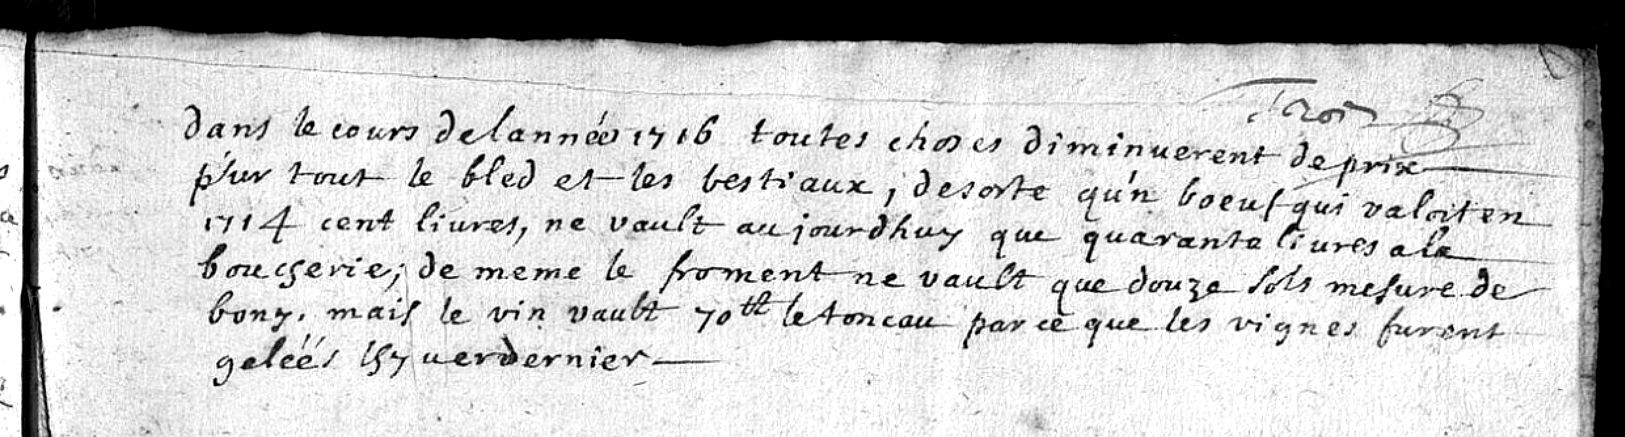 dans le cours de lannéé 1716 toutes choses diminuerent de prix
sur tout le bled et les bestiaux, desorte qu'n boeuf qui valoit en
1714 cent liures, ne vault aujourdhuy que quaranta liures a la
boucherie; de meme le froment ne vault que douze sols mesure de
bony. mais le vin vault 70 tt le toncau par ce que les vignes furent
geléés lhyuer dernier